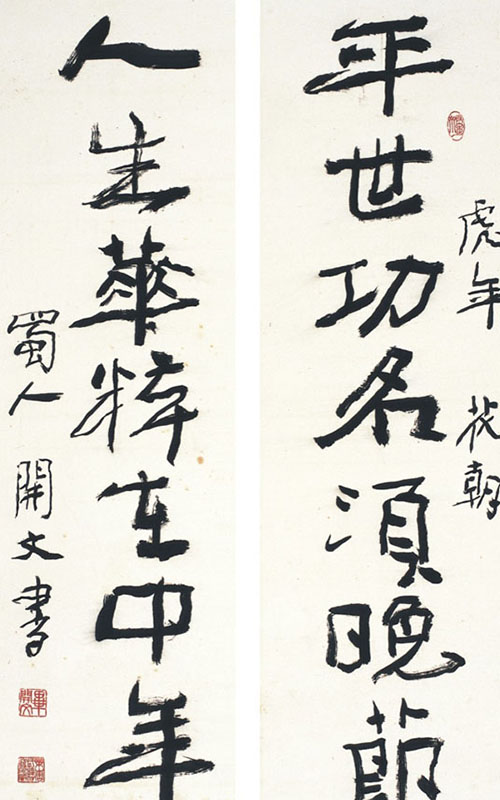 虎年 花朝
年世功名須晚節
人生華粹在中年
蜀人 開文書